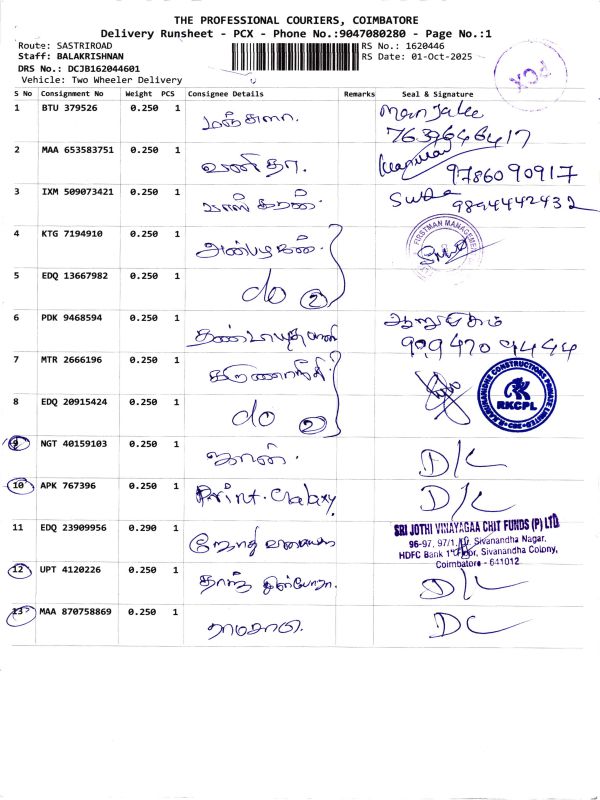 THE PROFESSIONAL COURIERS, COIMBATORE
Delivery Runsheet - PCX - Phone No.:9047080280 - Page No.:1
Route: SASTRIROAD
Staff: BALAKRISHNAN
DRS No.: DCJB162044601
Vehicle: Two Wheeler Delivery
RS No.: 1620446
RS Date: 01-Oct-2025
PCX
S No Consignment No Weight PCS Consignee Details Remarks Seal & Signature
1 BTU 379526 0.250 1 மஞ்சுளா.
7639646417
2 MAA 653583751 0.250 1 வனிதா. 9786090917
3 IXM 509073421 0.250 1 Sudha
9894442432
4 KTG 7194910 0.250 1 அன்பழகன். FIRSTMAN MANAGEME
5 EDQ 13667982 0.250 1 do 2
6 PDK 9468594 0.250 1 ஆறுமுகம்
7 MTR 2666196 0.250 1
8 EDQ 20915424 0.250 1 do 2 CONSTRUCTIONS PRIVATE LIMITED RKCPL CBE
9 NGT 40159103 0.250 1 D/L
10 APK 767396 0.250 1 Print. Galaxy D/L
11 EDQ 23909956 0.290 1 SRI JOTHI VINAYAGAA CHIT FUNDS (P) LTD
96-97, 97/1, Sivanandha Nagar,
HDFC Bank 1st Floor, Sivanandha Colony,
Coimbatore - 641012
12 UPT 4120226 0.250 1 D/L
13 MAA 870758869 0.250 1 ராமசாமி. DC